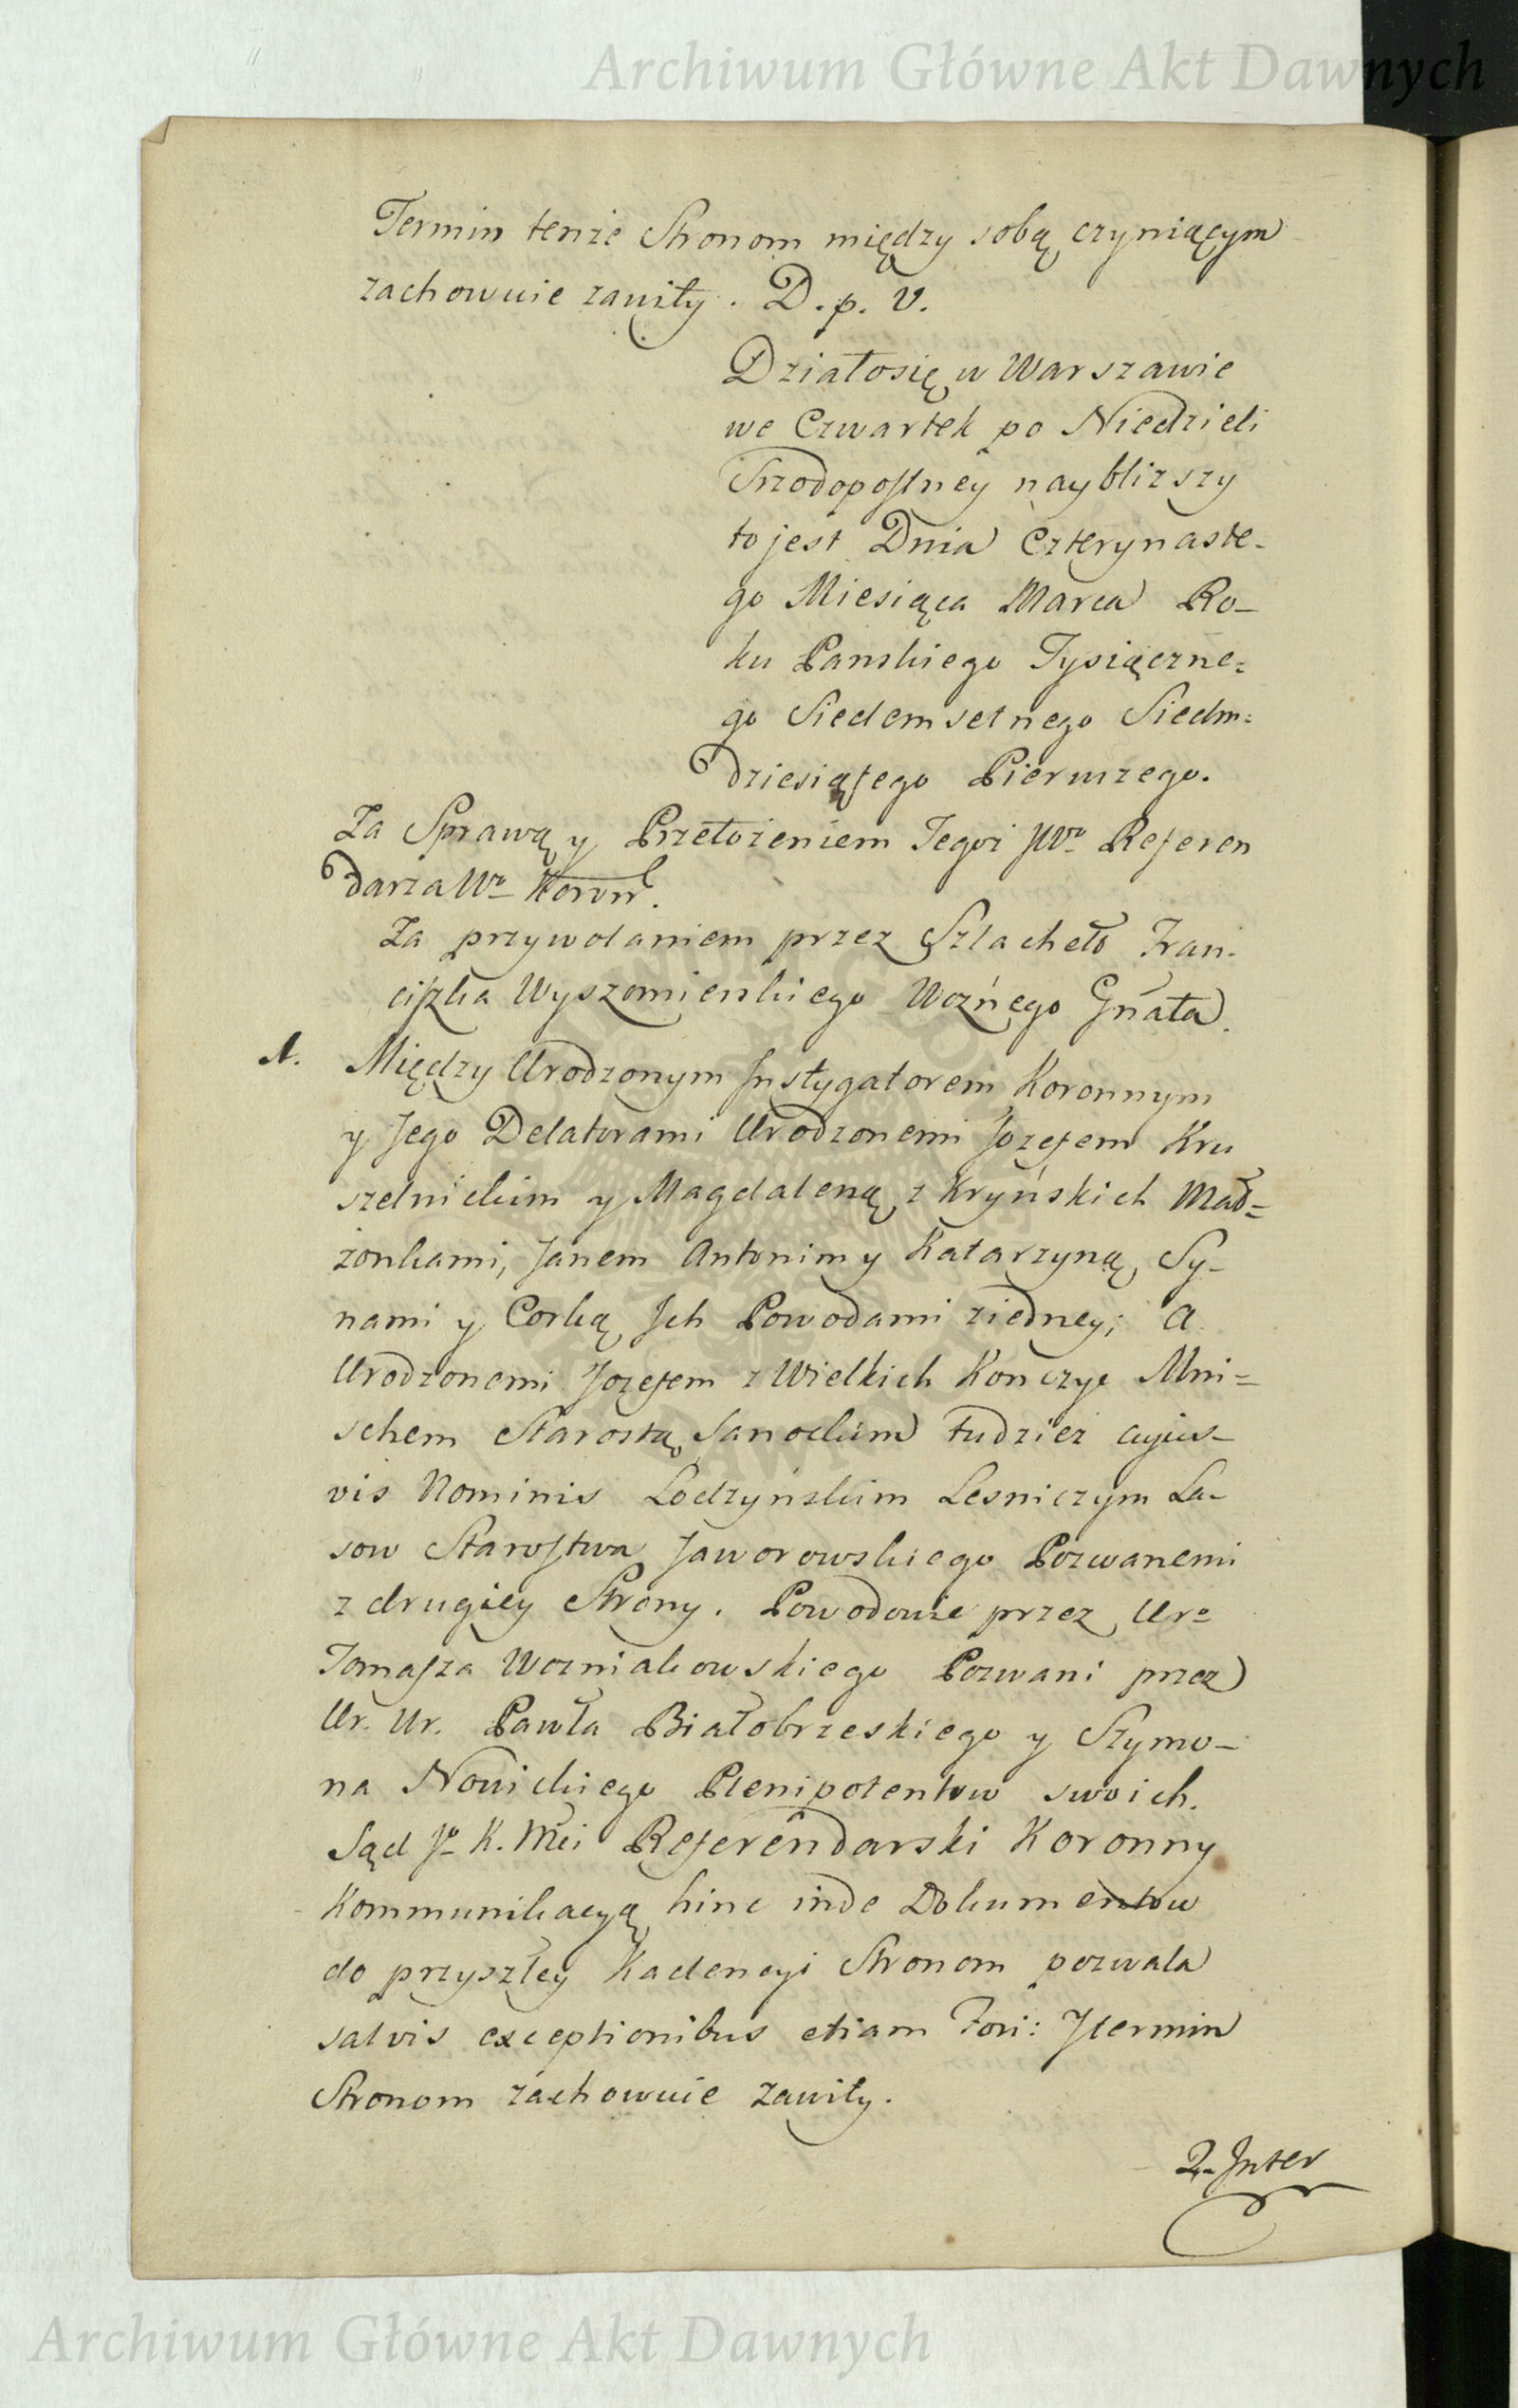 Archiwum Główne Akt Dawnych
Termin tenże Stronom między sobą czyniącym
zachowuie zawiły. D. p. V.
Działosię w Warszawie
we Czwartek po Niedzieli
Srzodopostney naybliższy
to jest Dnia Czterynaste-
go Miesiąca Marca Ro-
ku Panskiego Tysiączne=
go Siedemsetnego Siedm=
dziesiątego Pierwszego.
Za Sprawą y Przełożeniem Tegoż JWo Referen
darza Wo Koron.
Za przywołaniem przez Szlachetо Fran-
ciszka Wyszomierskiego Woźnego Gnała.
1. Między Urodzonym Instygatorem Koronnym
y Jego Delatorami Urodzonemi Jozefem Kru
szelnickim y Magdaleną z Kryńskich Mał=
żonkami, Janem Antonim y Katarzyną, Sy-
nami y Corką Ich Powodami ziedney; a
Urodzonemi Jozefem z Wielkich Kończyc Mni=
schem Starostą Sanockim tudzież cujus-
vis Nominis Lodzyńskim Lesniczym La-
sow Starostwa Jaworowskiego Pozwanemi
z drugiey Strony. Powodowie przez Uro
Tomasza Wozniakowskiego Pozwani przez
Ur. Ur. Pawła Białobrzeskiego y Szymo-
na Nowickiego Plenipotentow swoich.
Sąd Jo K. Mci Referendarski Koronny
Kommunikacyą hinc inde Dokumentow
do przyszłey Kadencyi Stronom pozwala
salvis exceptionibus etiam Fori: Itermin
Stronom zachowuie zawiły.
2. Inter
Archiwum Główne Akt Dawnych